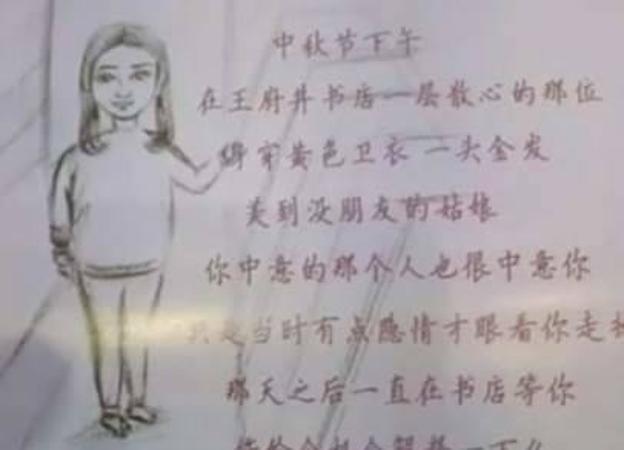 中秋节下午
在王府井书店一层散心的那位
穿黄色卫衣 一头金发
美到没朋友的姑娘
你中意的那个人也很中意你
只是当时有点隐情才眼看你走
那天之后一直在书店等你
你给个机会解释一下